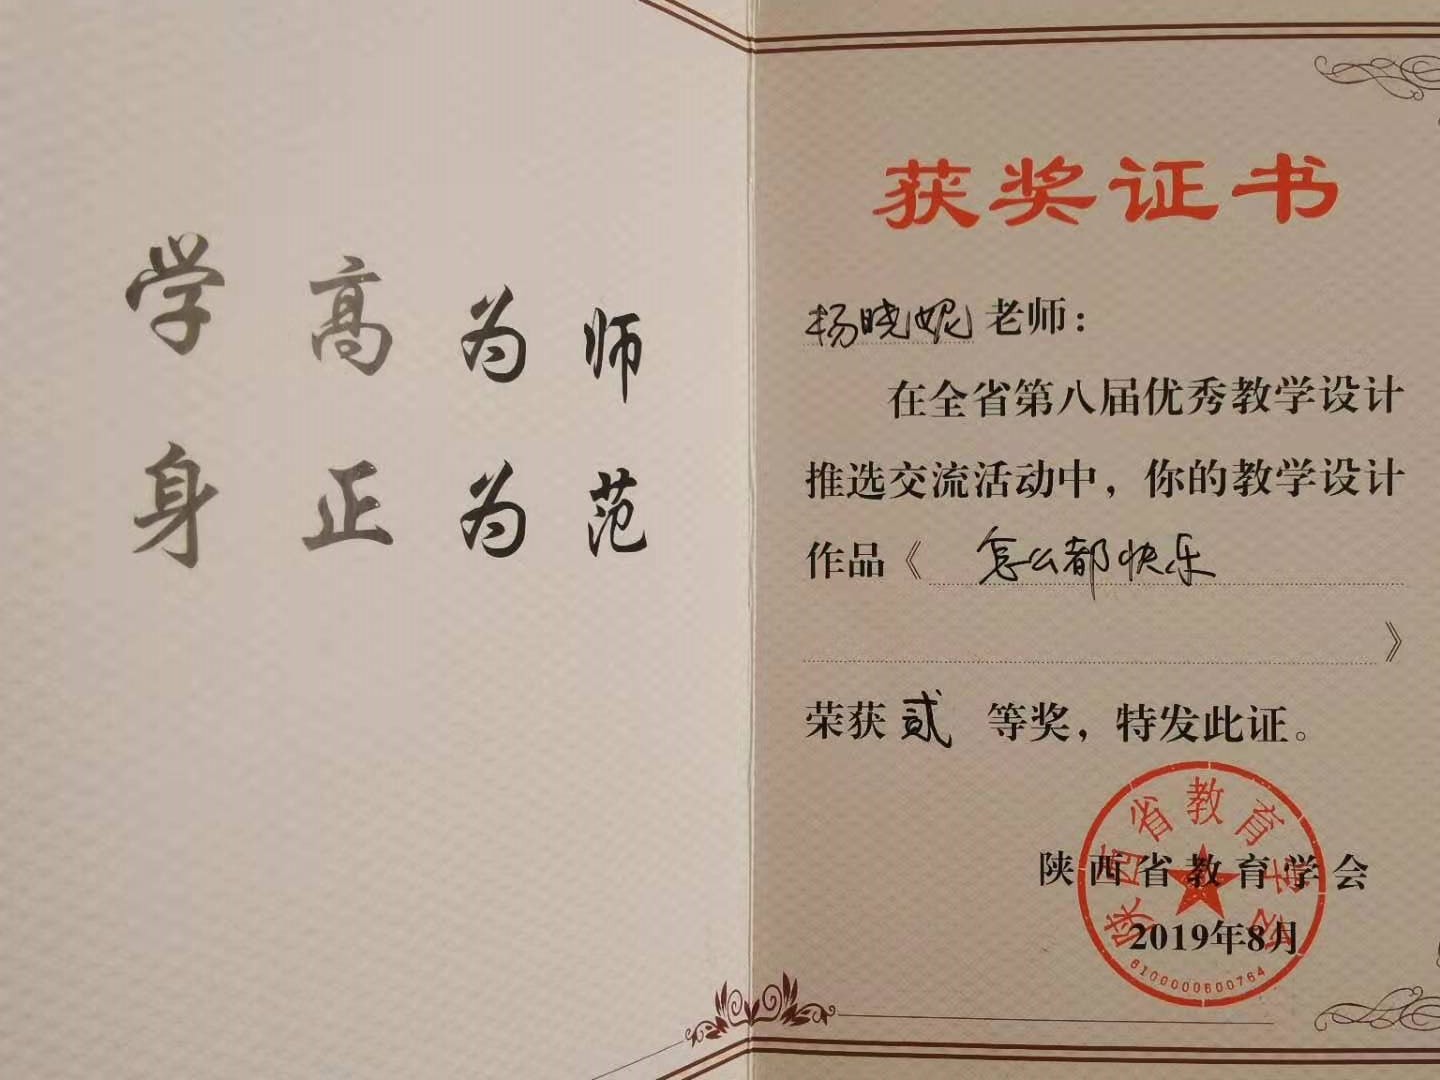 学高为师
身正为范
获奖证书
杨晓妮老师：
在全省第八届优秀教学设计
推选交流活动中，你的教学设计
作品《怎么都快乐
》
荣获贰等奖，特发此证。
陕西省教育学会
2019年8月
陕西省教育学会
6100000600764